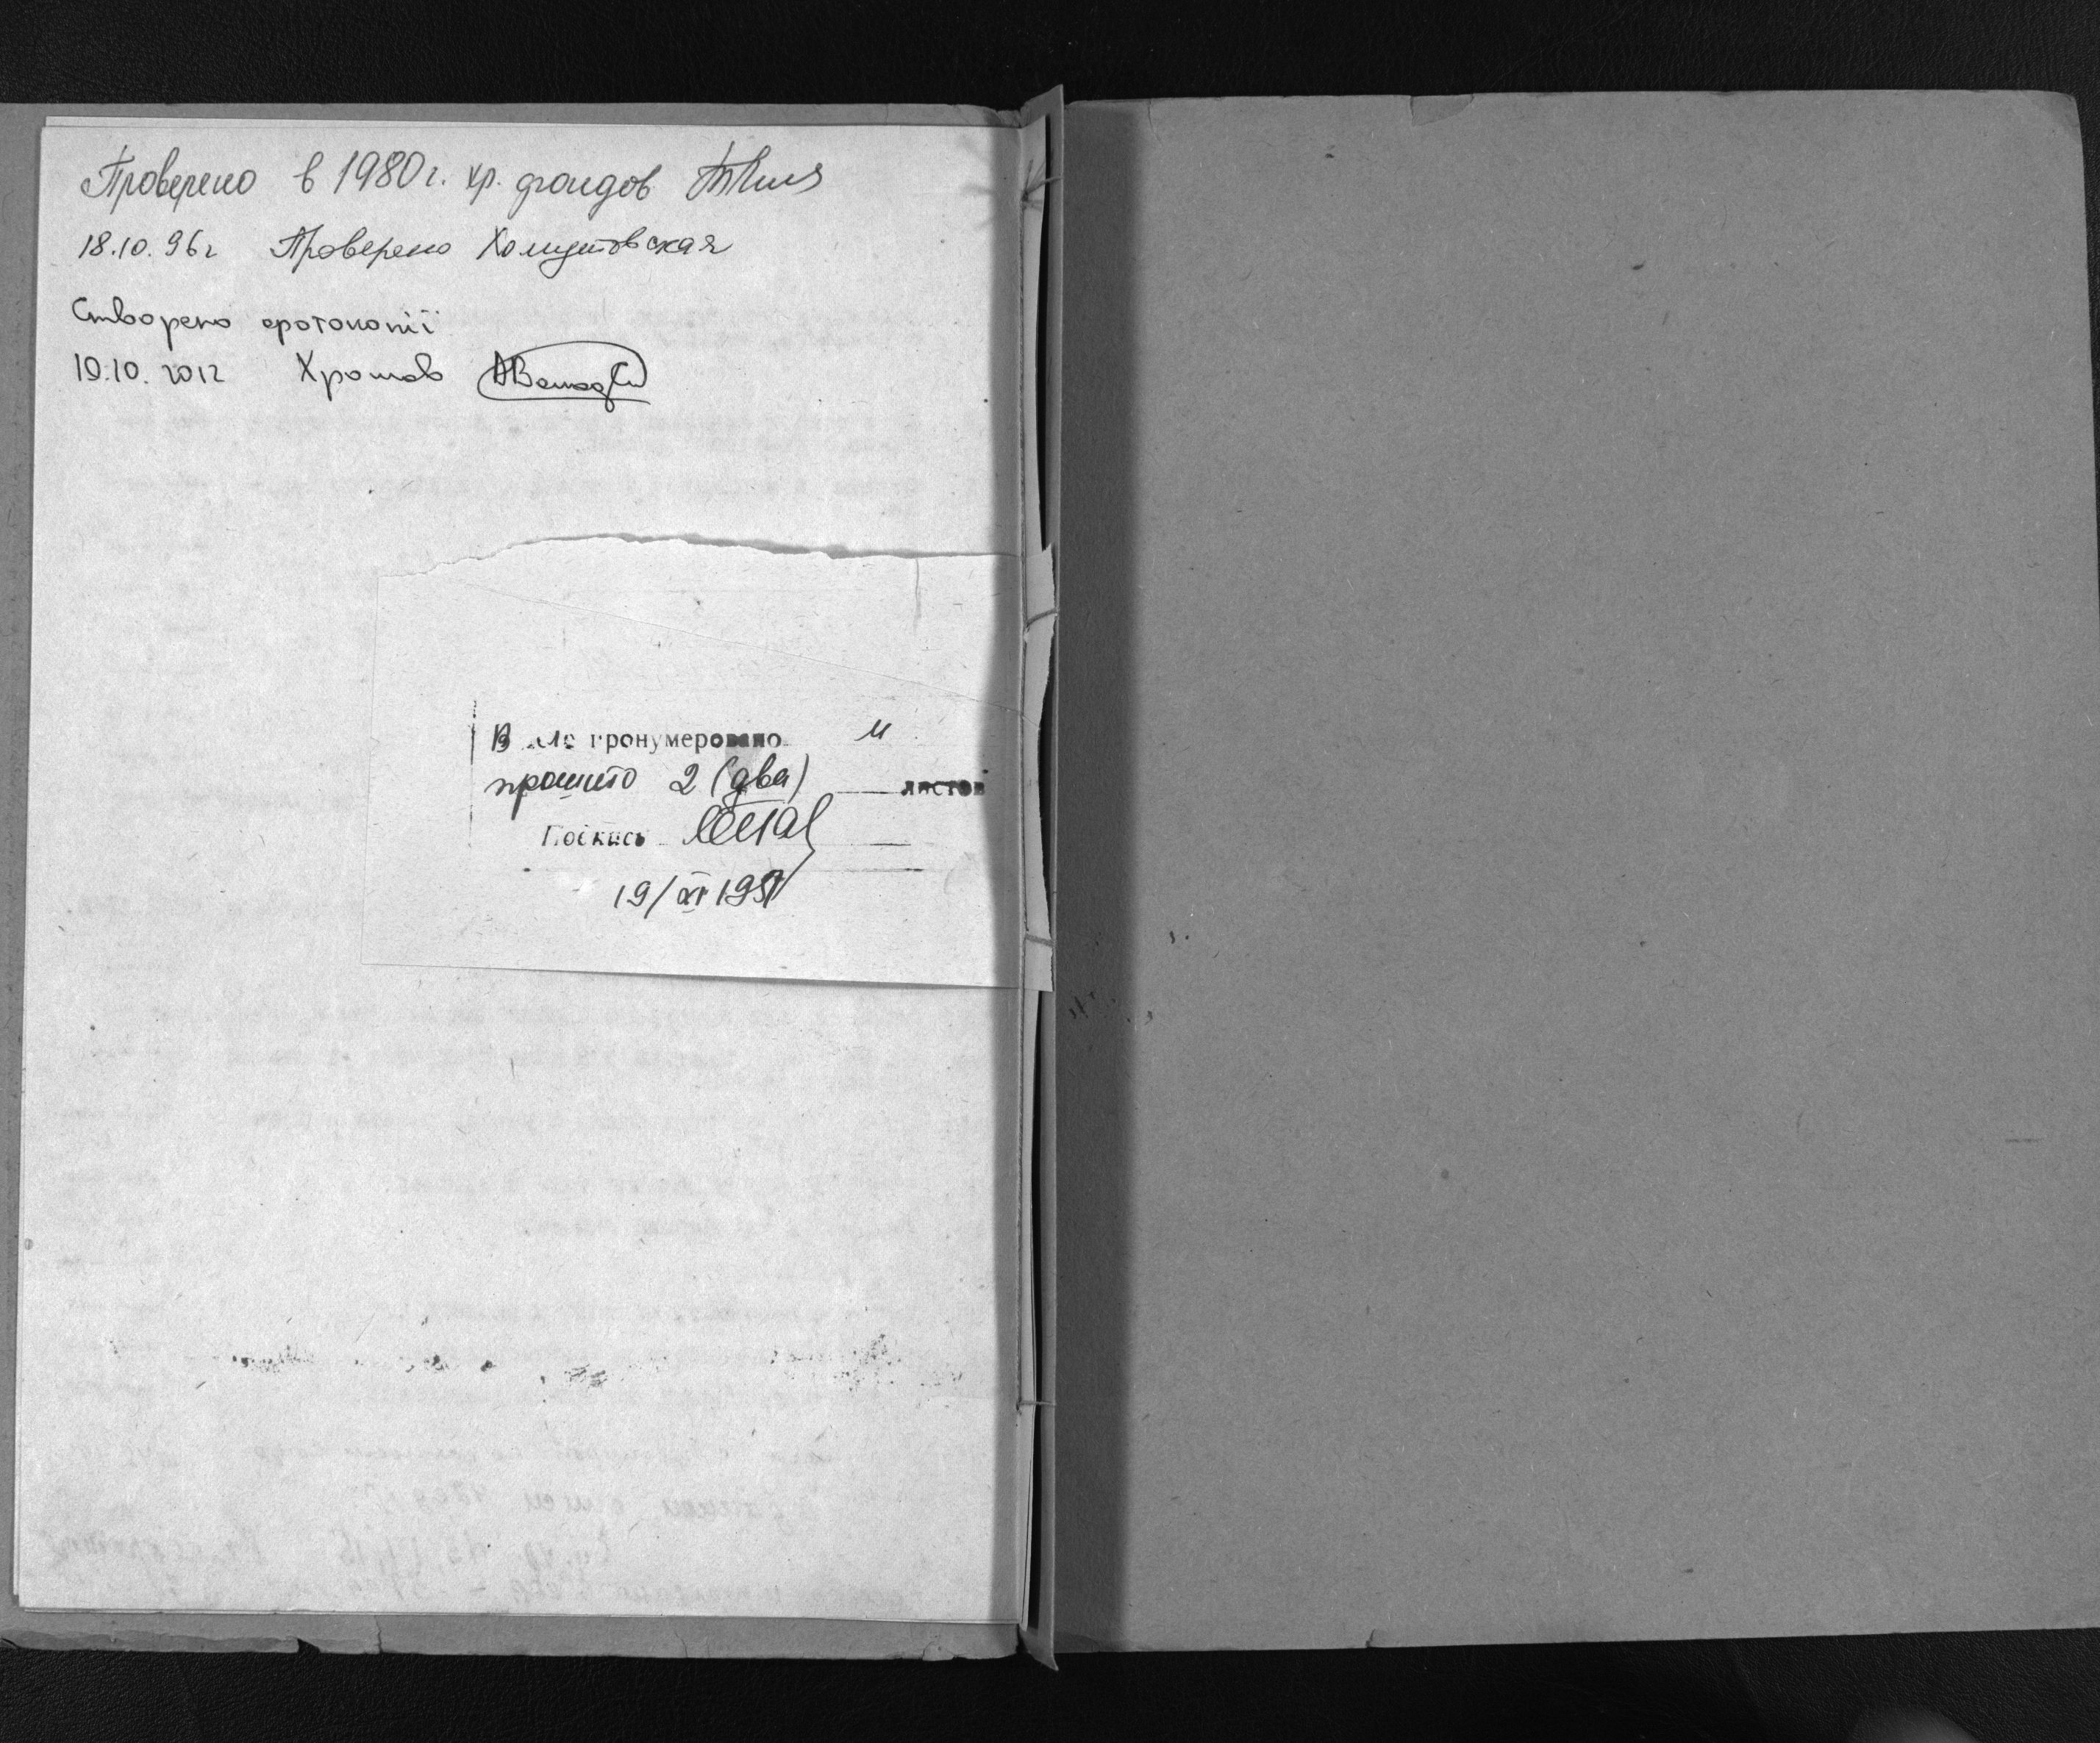 Проверено в 1980 г. хр. фондов
18.10.96 г Проверено Хомутовская
Створено фотокопії
10.10.2012
В деле пронумеровано и
прошито 2 (два) листов
Подпись
19/XI 195